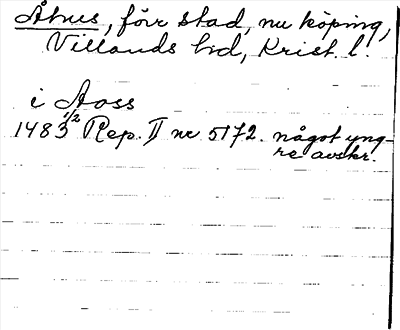 Åhus, förr stad, nu köping,
Villands hd, Krist. l.
i Aoss
1483 1/2 Rep. II nr 5172. något yng-
re avskr.